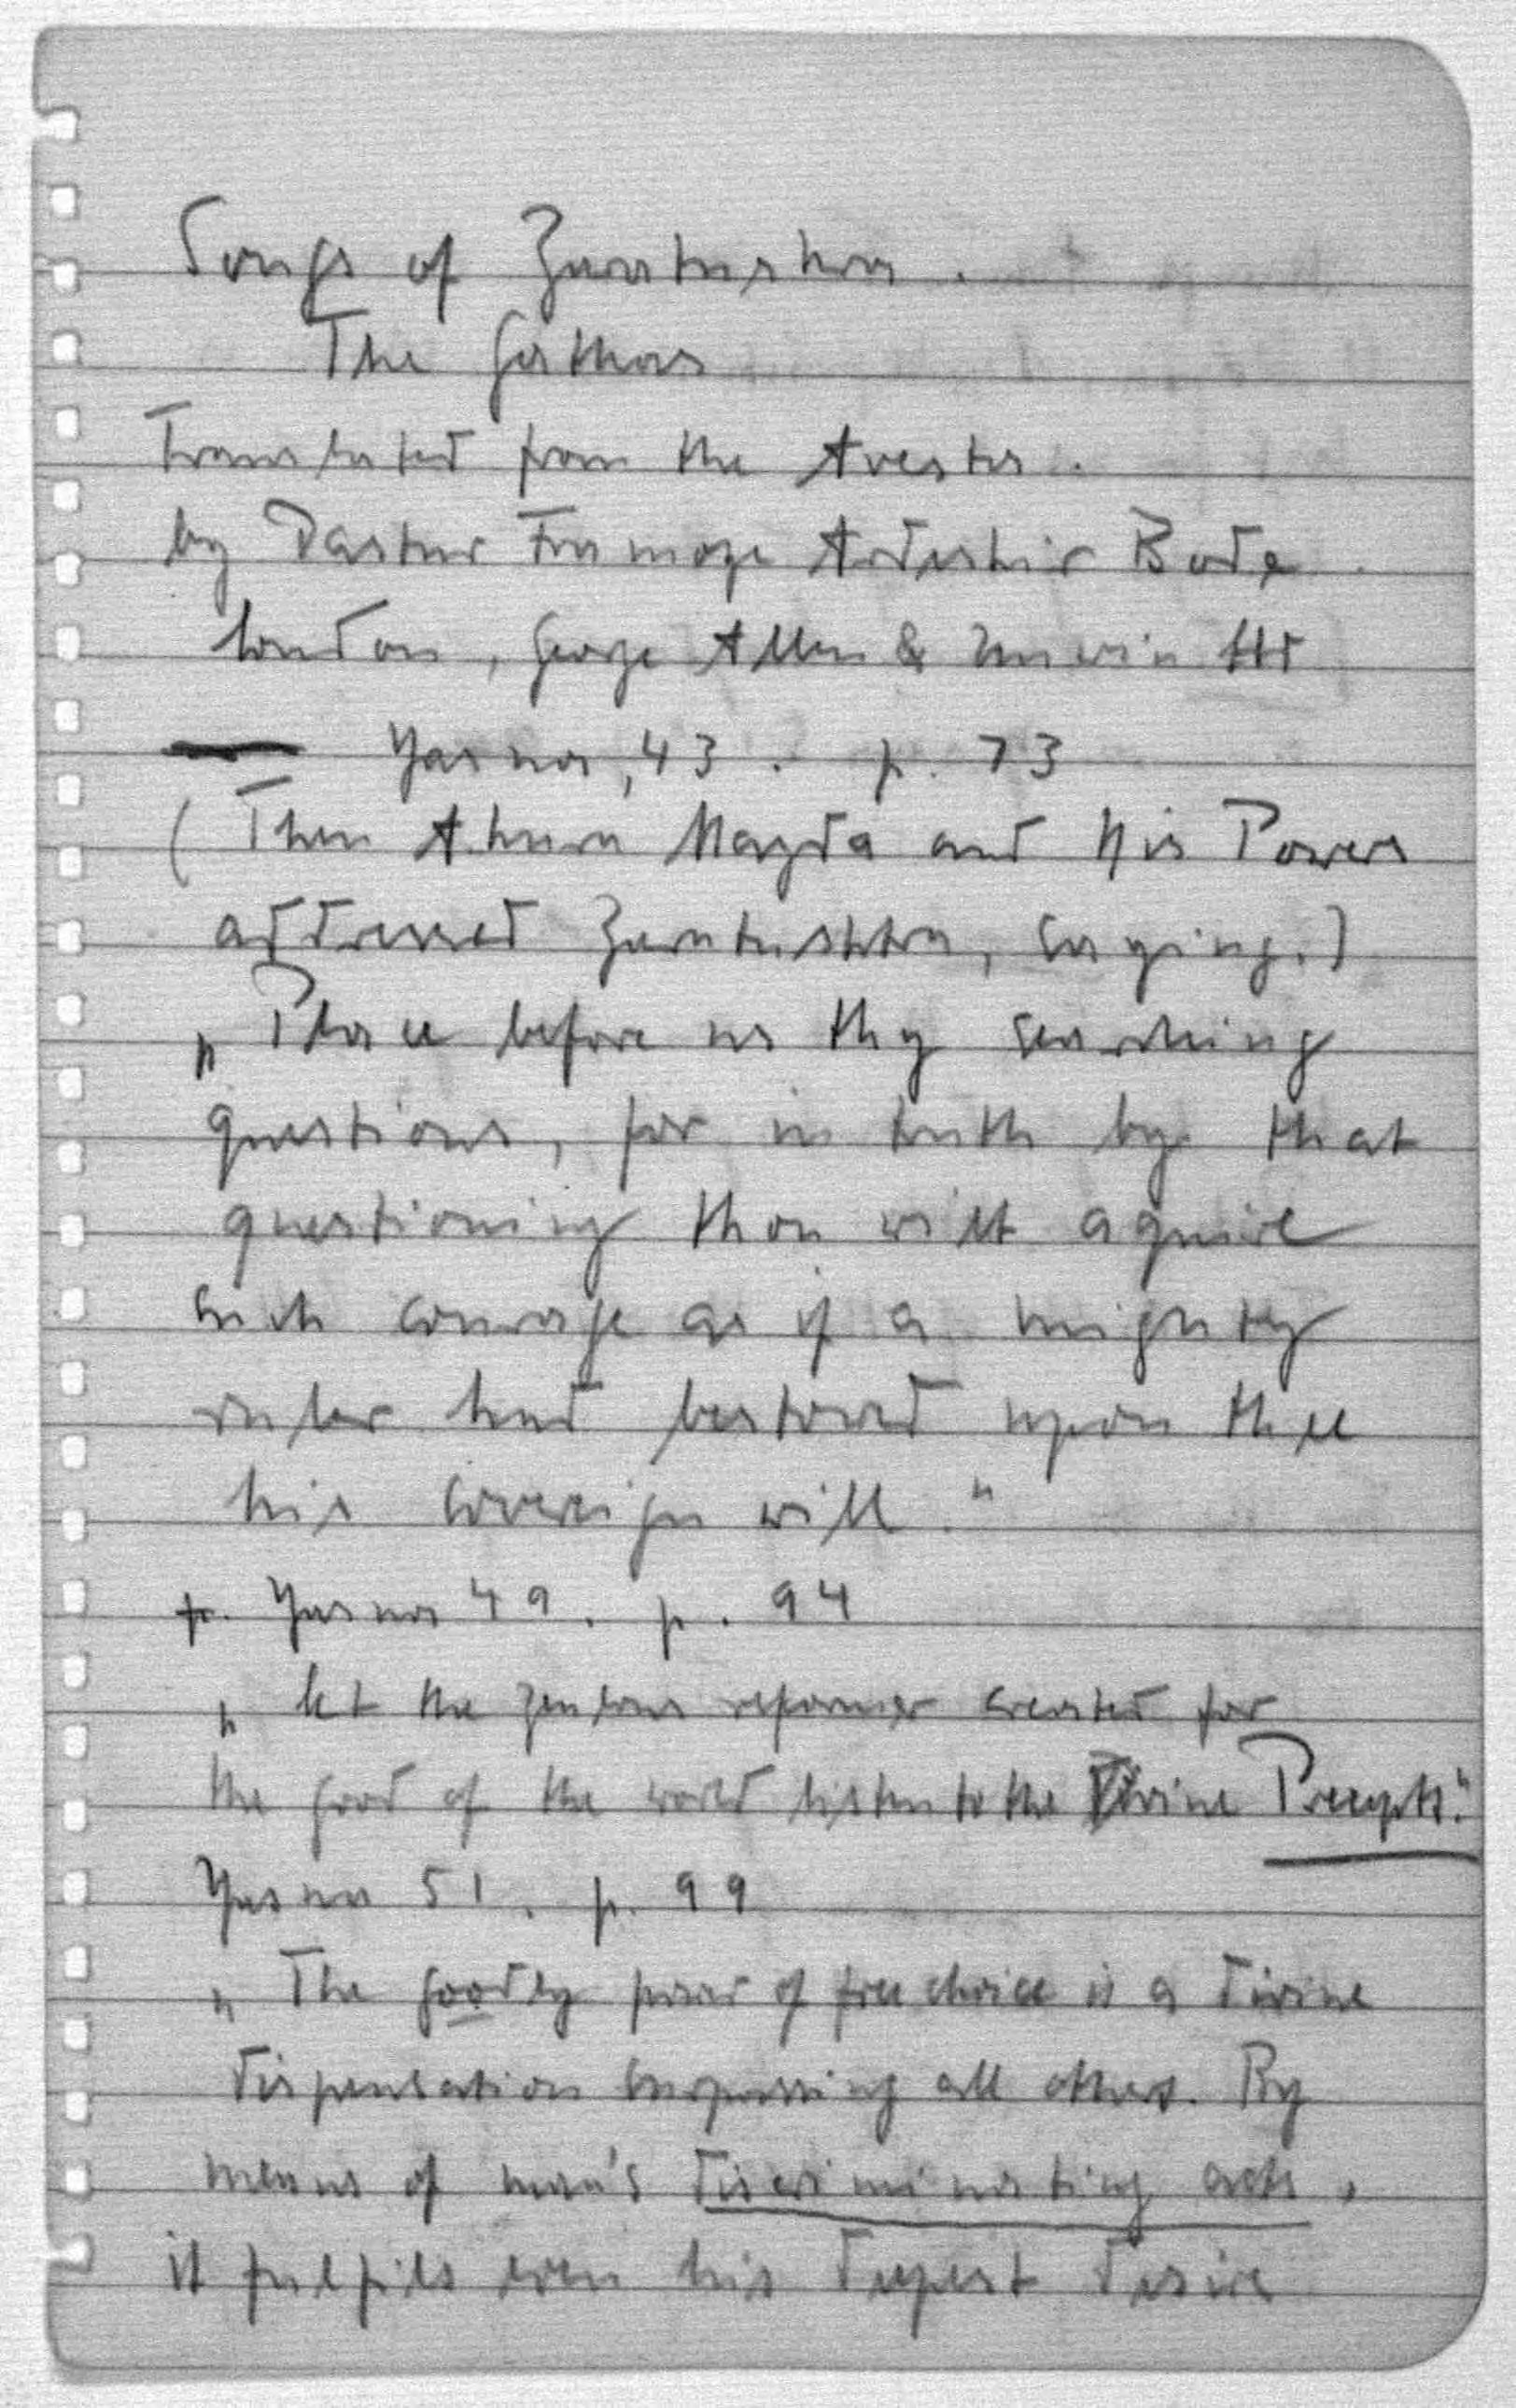 Songs of Zarathushtra.
The Gathas
Translated from the Avesta.
by Dastur Framoze Ardeshir Bode.
London, George Allen & Unwin Ltd
— Yasna, 43. p. 73
(Then Ahura Mazda and His Powers
addressed Zarathushtra, saying.)
„Place before us thy searching
questions, for in truth by that
questioning thou wilt aquire
such courage as if a mighty
ruler had bestowed upon thee
his sovereign will."
p. Yasna 49. p. 94
„Let the zealous reformer created for
the good of the world listen to the Divine Precepts."
Yasna 51. p. 99
„The goodly power of free choice is a divine
dispensation surpassing all others. By
means of man's discriminating acts,
it fulfils even his deepest desire